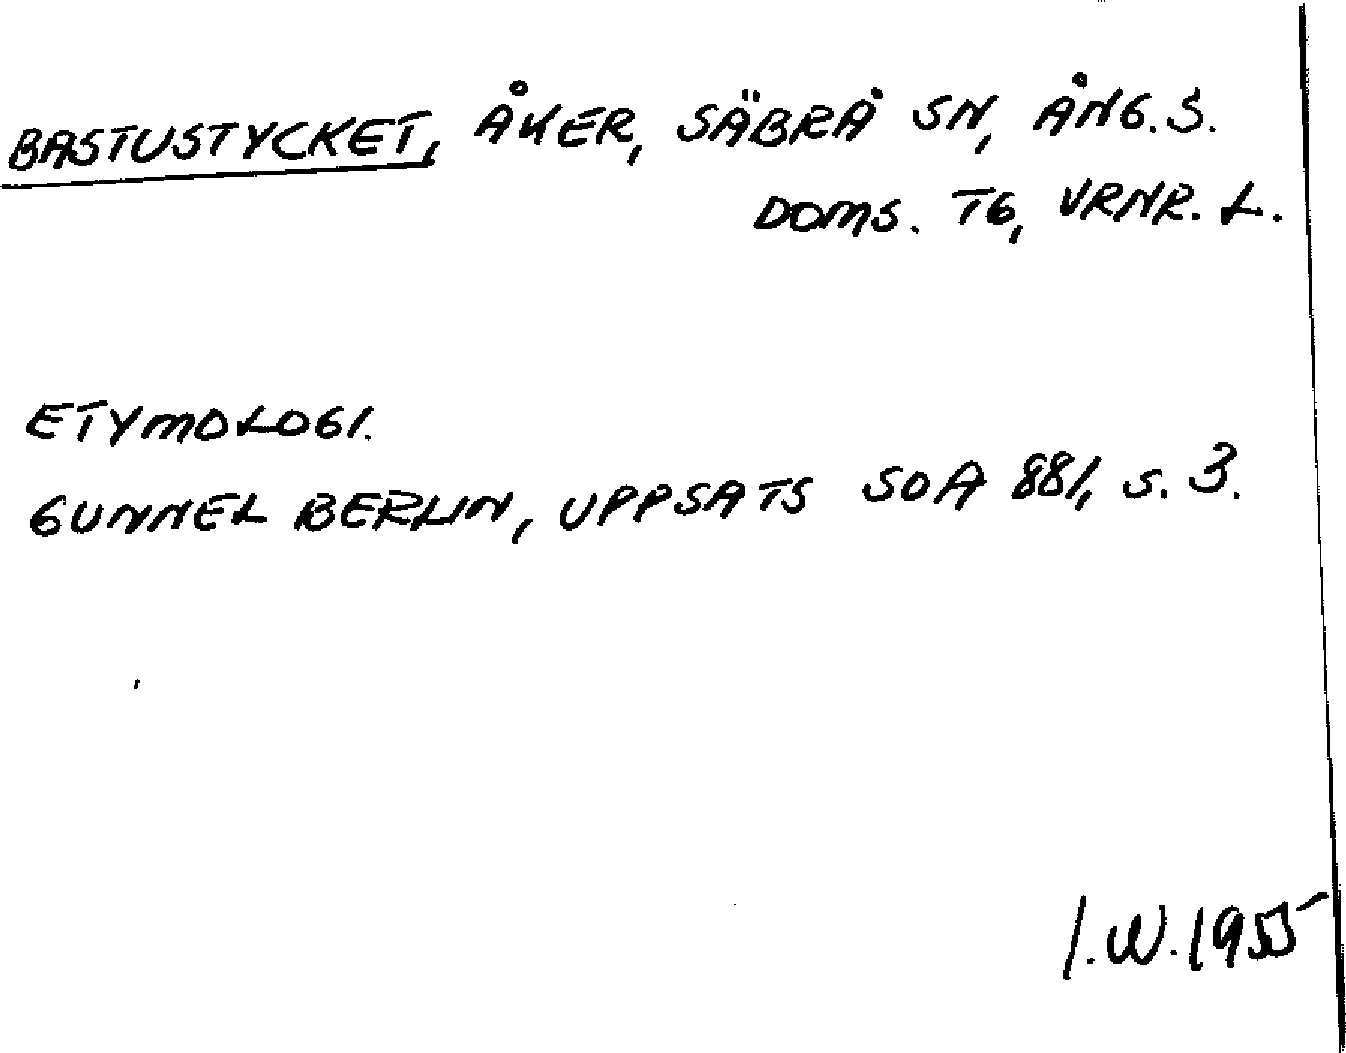 BASTUSTYCKET, ÅKER, SÄBRÅ SN, ÅNG.S.
DOMS. TG, VRNR. L.
ETYMOLOGI.
GUNNEL BERLIN, UPPSATS SOA 881, S. 3.
I.W. 1955